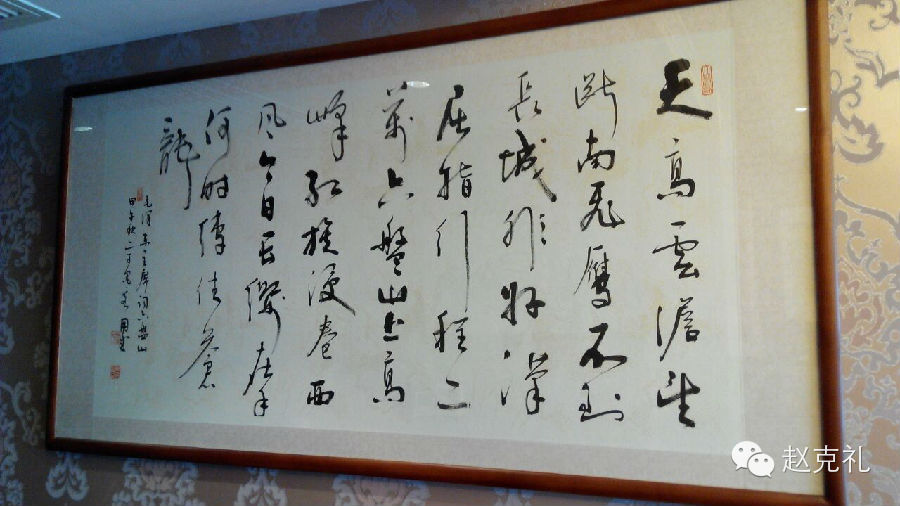 天高雲澹望
断南飛鴈不到
長城非好漢
屈指行程二
萬六盤山上高
峰紅旗漫卷西
風今日長纓在手
何时縛住蒼
龍
毛泽东主席词六盤山
甲午秋
赵克礼